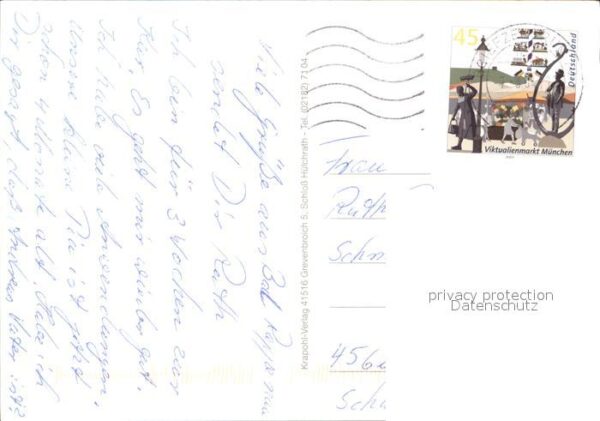 Viele Grüße aus Bad Rappenau
sendet Dir Ruth
Ich bin für 3 Wochen zur
Kur. Es geht mir wieder gut.
Ich habe viele Anwendungen.
Unsere kleine Pia ist jetzt
schon Monate alt. Habe ich
Dir gesagt, daß Andreas Vater ist?
Krapohl-Verlag 41516 Grevenbroich 5, Schloß Hülchrath - Tel. (02182) 71 04
45
Deutschland
Viktualienmarkt München
Frau
Ruth
Schm
456
Sch
privacy protection
Datenschutz